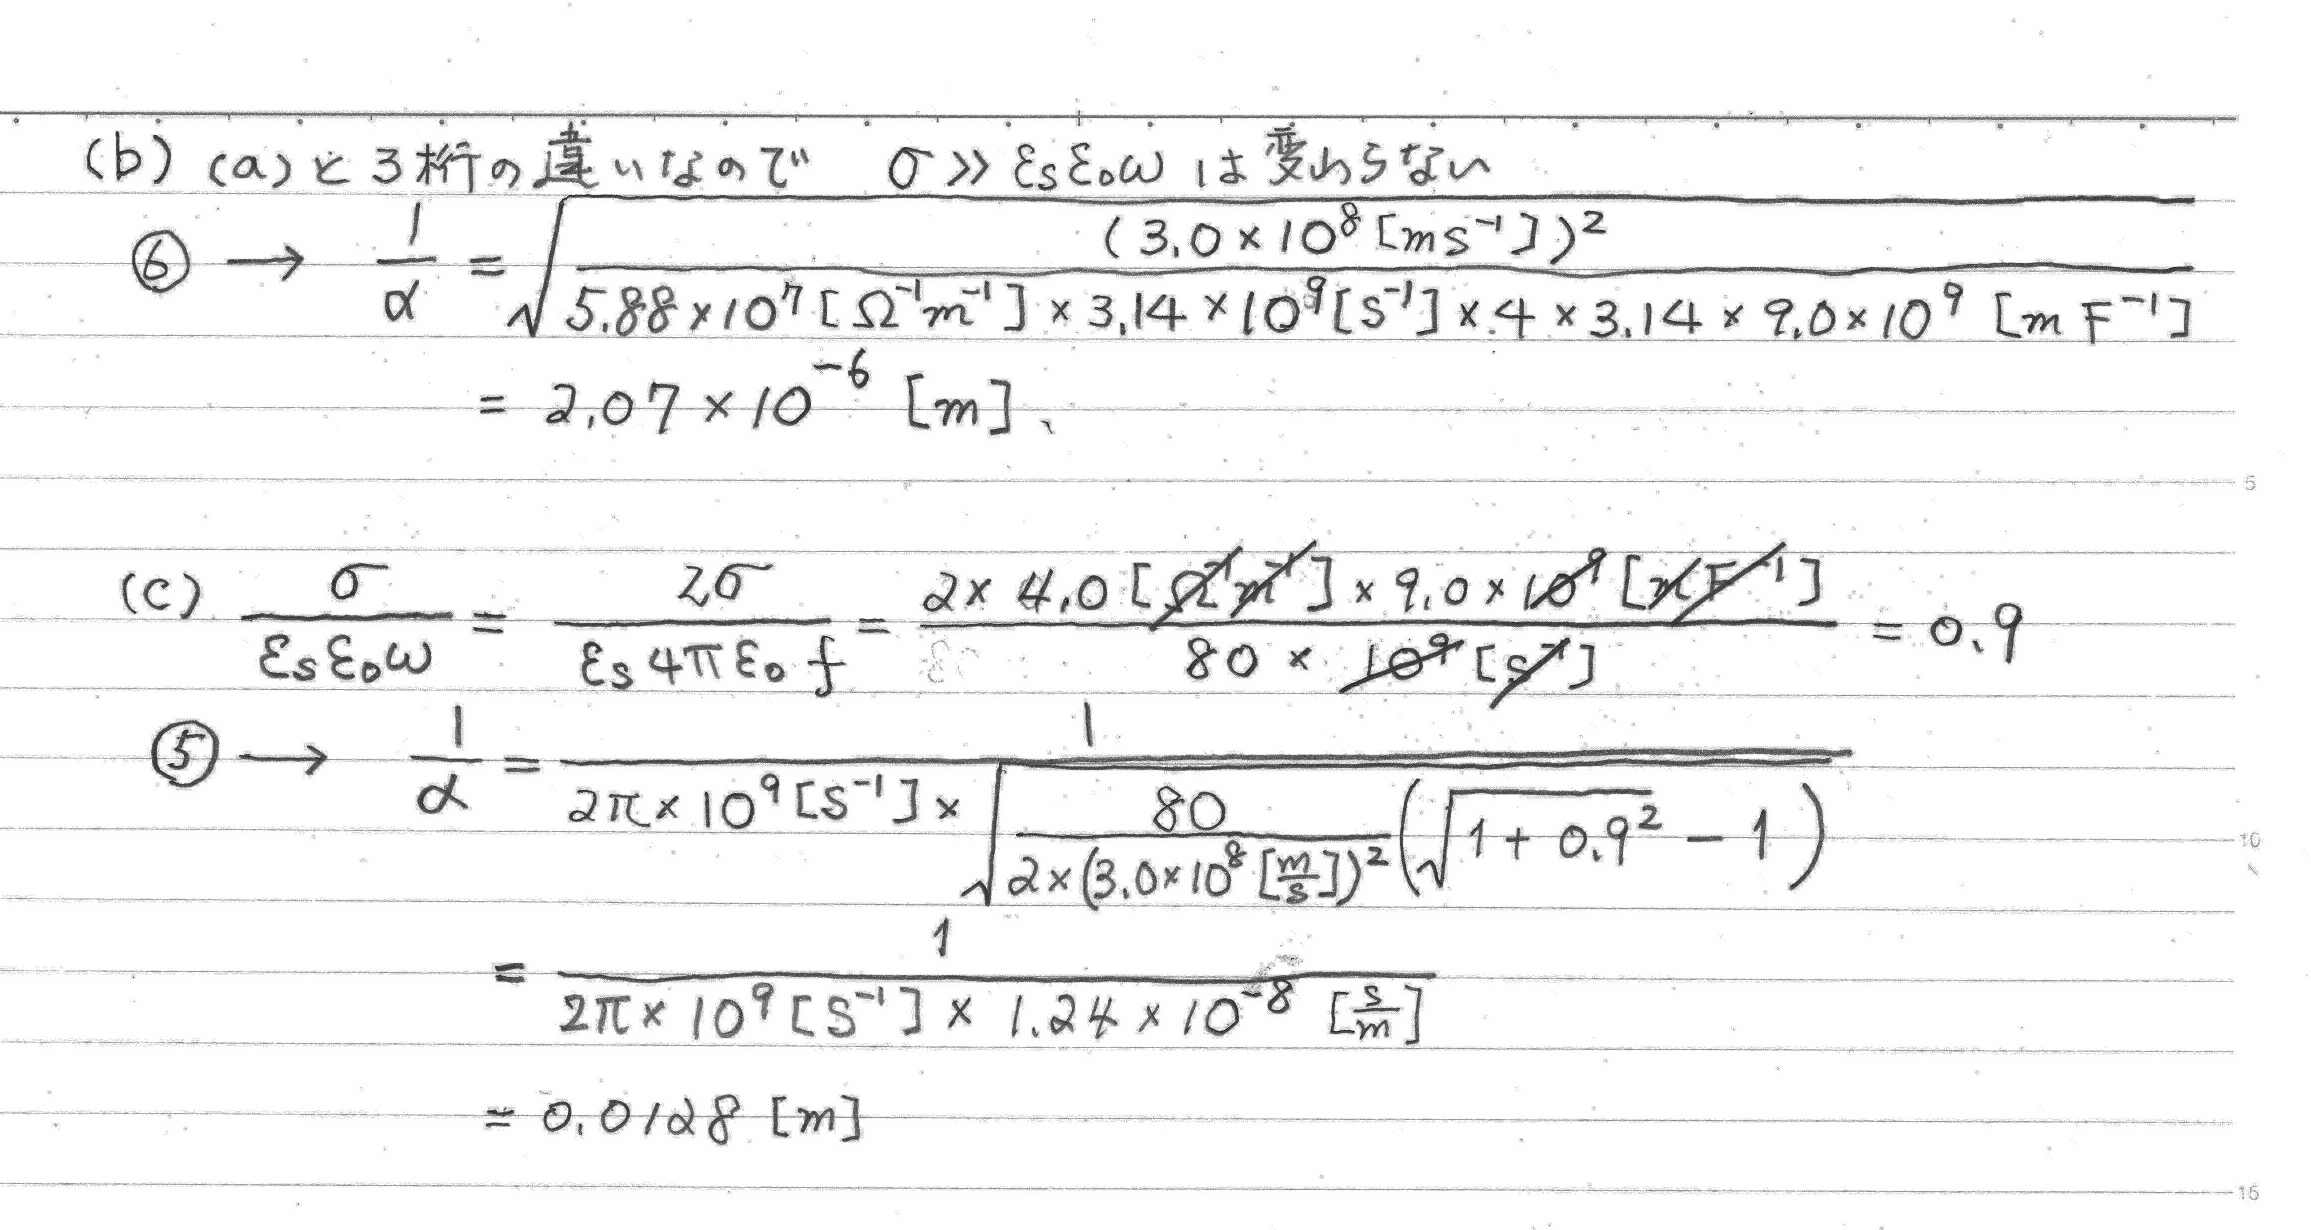 (b) (a)と3桁の違いなので σ≫εsε₀ω は変わらない
⑥ → 1/α = √((3.0×10⁸[ms⁻¹])² / (5.88×10⁷[Ω⁻¹m⁻¹]×3.14×10⁹[s⁻¹]×4×3.14×9.0×10⁹[mF⁻¹]))
= 2.07×10⁻⁶ [m]、
5
(c) σ/(εsε₀ω) = 2σ/(εs4πε₀f) = (2×4.0[Ω⁻¹m⁻¹]×9.0×10⁹[mF⁻¹])/(80×10⁹[s⁻¹]) = 0.9
⑤ → 1/α = 1/(2π×10⁹[S⁻¹]×√(80/(2×(3.0×10⁸[m/s])²)(√(1+0.9²)−1)))
10
= 1/(2π×10⁹[S⁻¹]×1.24×10⁻⁸[s/m])
= 0.0128 [m]
15